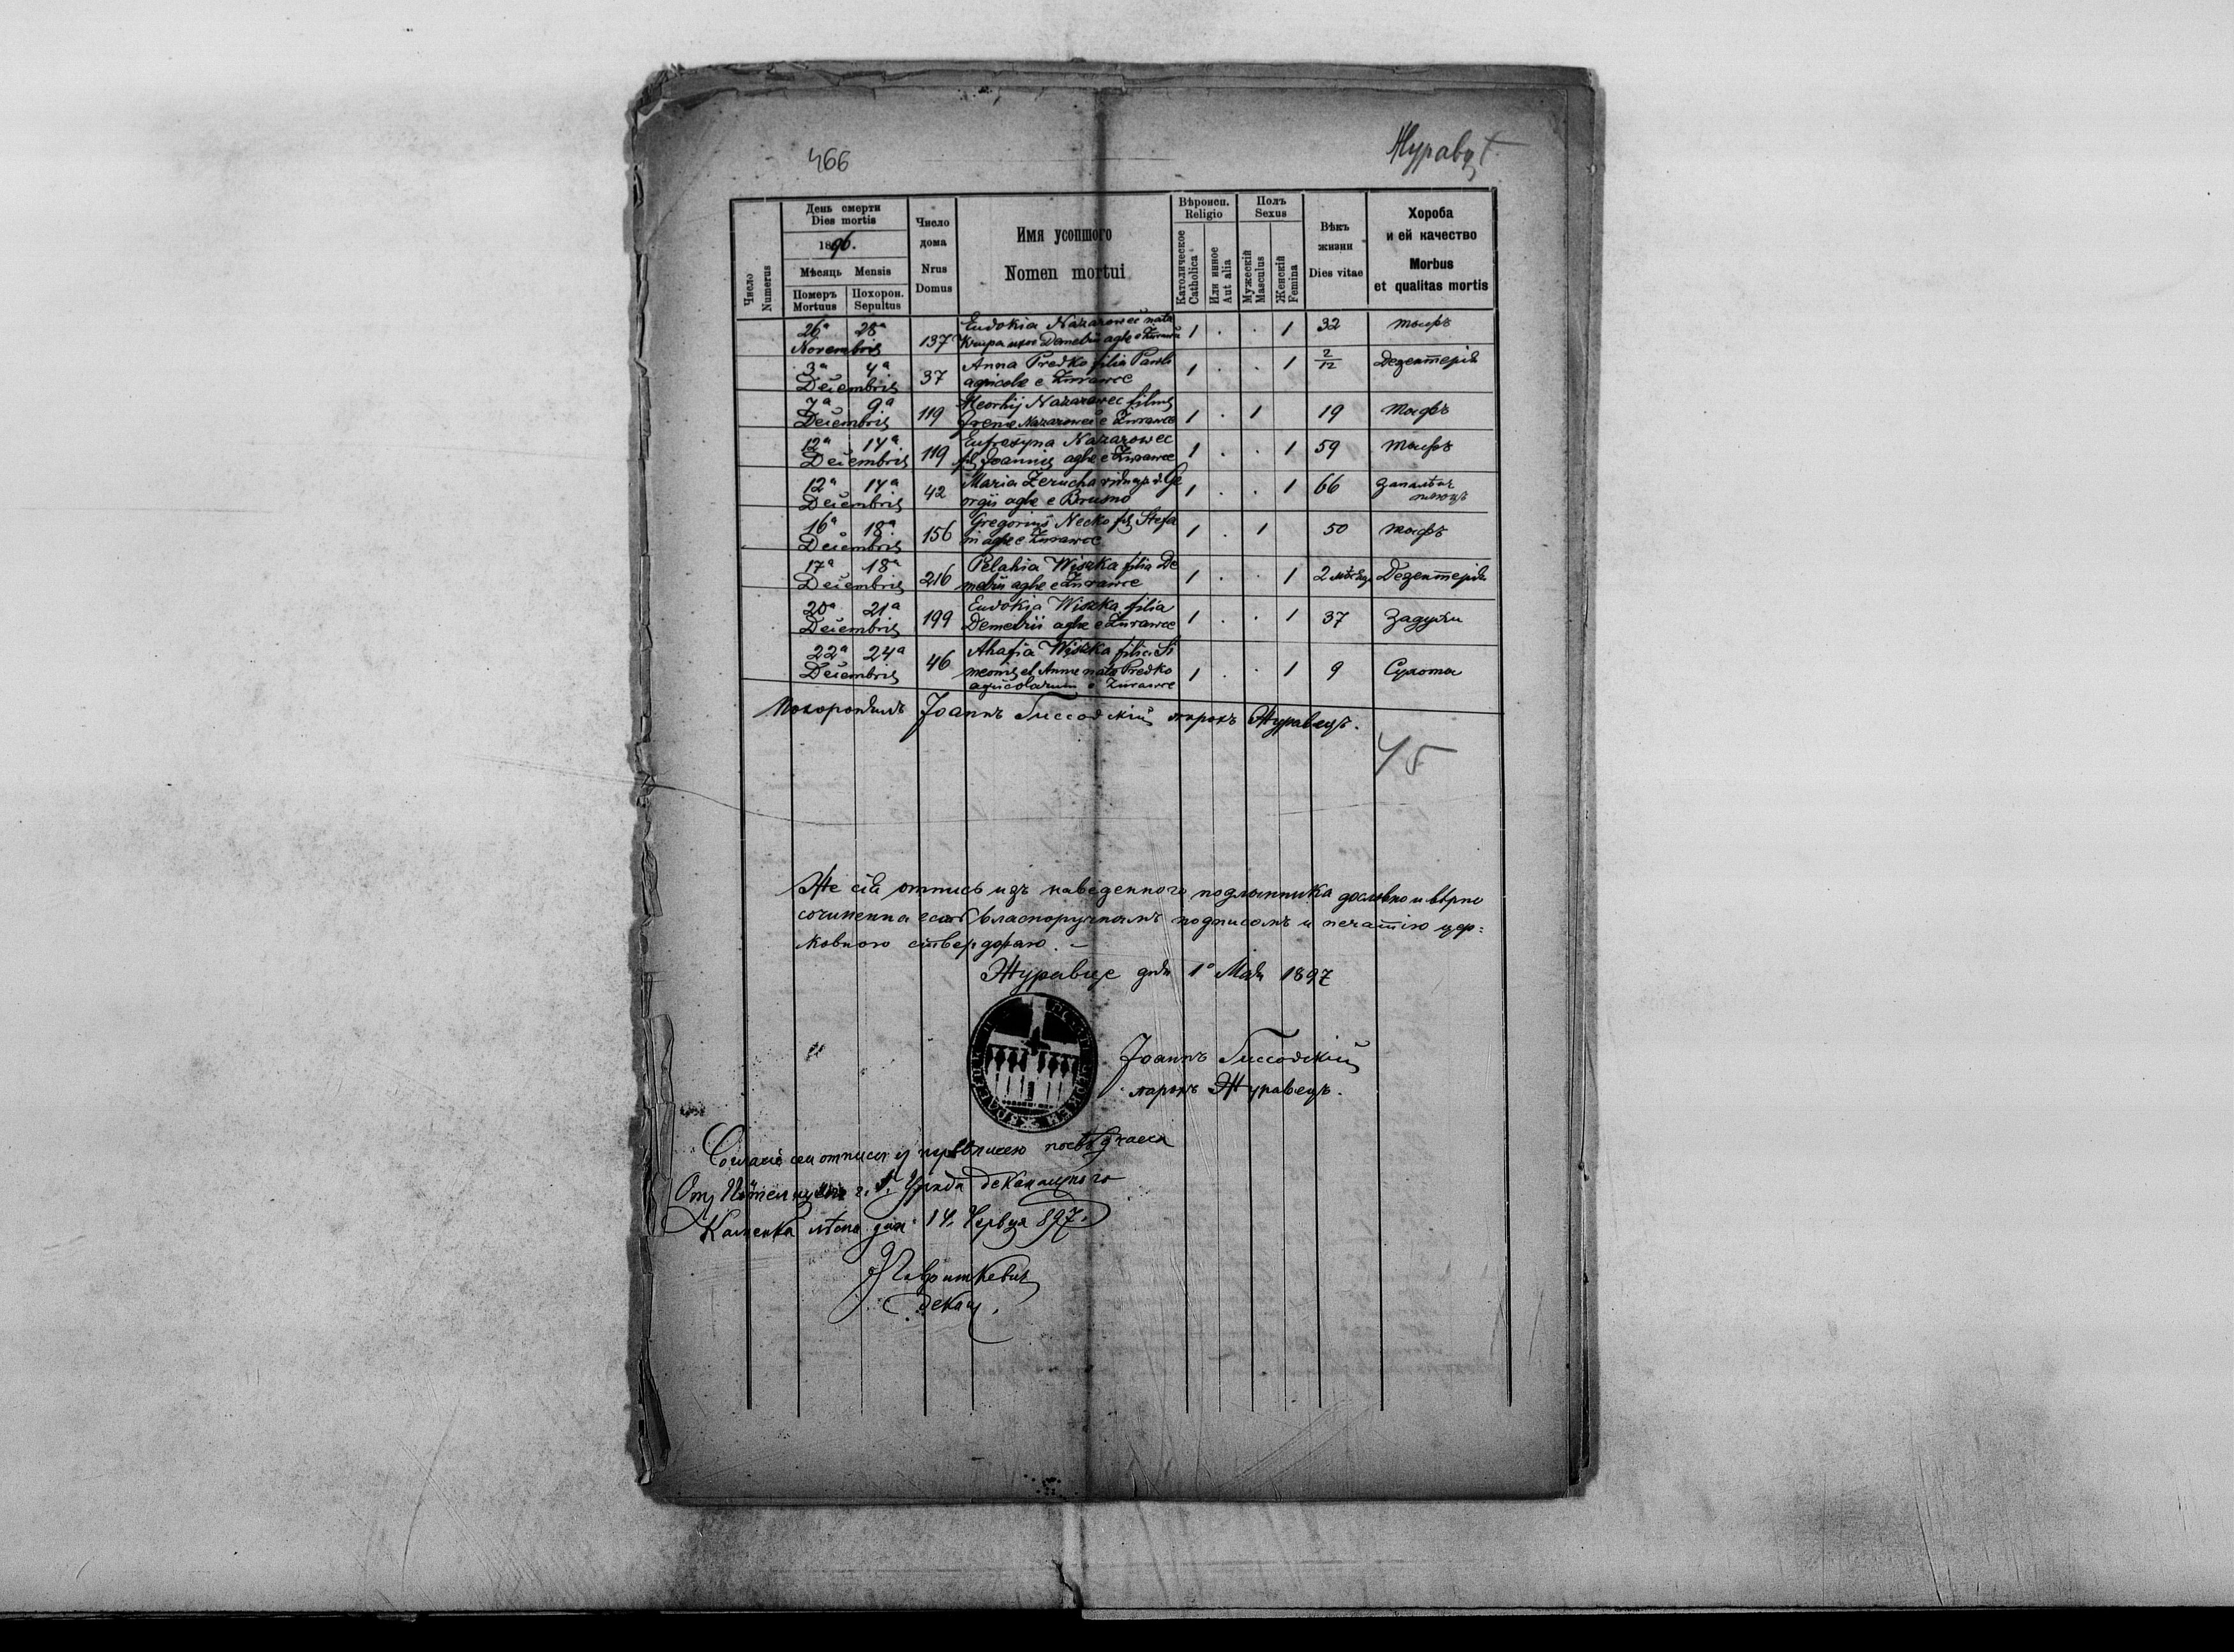 466
Журавц
Число Numerus
День смерти
Dies mortis
1896.
Мѣсяць Mensis
Померъ Mortuus
Похорон. Sepultus
Число дома
Nrus Domus
Имя усопшого
Nomen mortui
Вѣроисп.
Religio
Католическое Catholica
Или инное Aut alia
Полъ
Sexus
Мужескій Masculus
Женскій Femina
Вѣкъ жизни
Dies vitae
Хороба
и ей качество
Morbus
et qualitas mortis
26ª 28ª Novembris 137 Eudokia Nazarowec nata
Demetrii aglae e 1 . . 1 32 тыфъ
3ª 4ª Decembris 37 Anna Predko filia Pawli
agricolae e Żurawce 1 . . 1 2/12 Дезентерія
7ª 9ª Decembris 119 Heorhij Nazarowec filius
Irenae Nazarowec e Żurawce 1 . 1 19 тыфъ
12ª 14ª Decembris 119 Eufrosyna Nazarowec
fil Joannis aglae e Żurawce 1 . . 1 59 тыфъ
12ª 14ª Decembris 42 Maria Zerucha vidua p. d. Ge
orgii aglae e Brusno 1 . . 1 66 Запалѣн
плюцъ
16ª 18ª Decembris 156 Gregorius Necko fil Stefa
ni aglae e Żurawce 1 . 1 50 тыфъ
17ª 18ª Decembris 216 Pelahia Wiszka filia De
metrii aglae e Żurawce 1 . . 1 2 мѣсяц Дезентерія
20ª 21ª Decembris 199 Eudokia Wiszka filia
Demetrii aglae e Żurawce 1 . . 1 37 Задухи
22ª 24ª Decembris 46 Ahafia Wiszka filia Si
meonis et Annae nata Predko
agricolarum e Żurawce 1 . . 1 9 Сухота
Похоронилъ Іоаннъ Гиссовскій парохъ Журавецъ.
45
Же сія отпись изъ наведенного подлинника дословно и вѣрно
сочиненна есть власноручнымъ подписомъ и печатію цер=
ковною ствердфаю. –
Журавце дня 1º Мая 1897
Іоаннъ Гиссовскій
парохъ Журавецъ.
сеи отписи
Отъ Уряда деканального
Каменка дня 14. Червца 897.
декан.